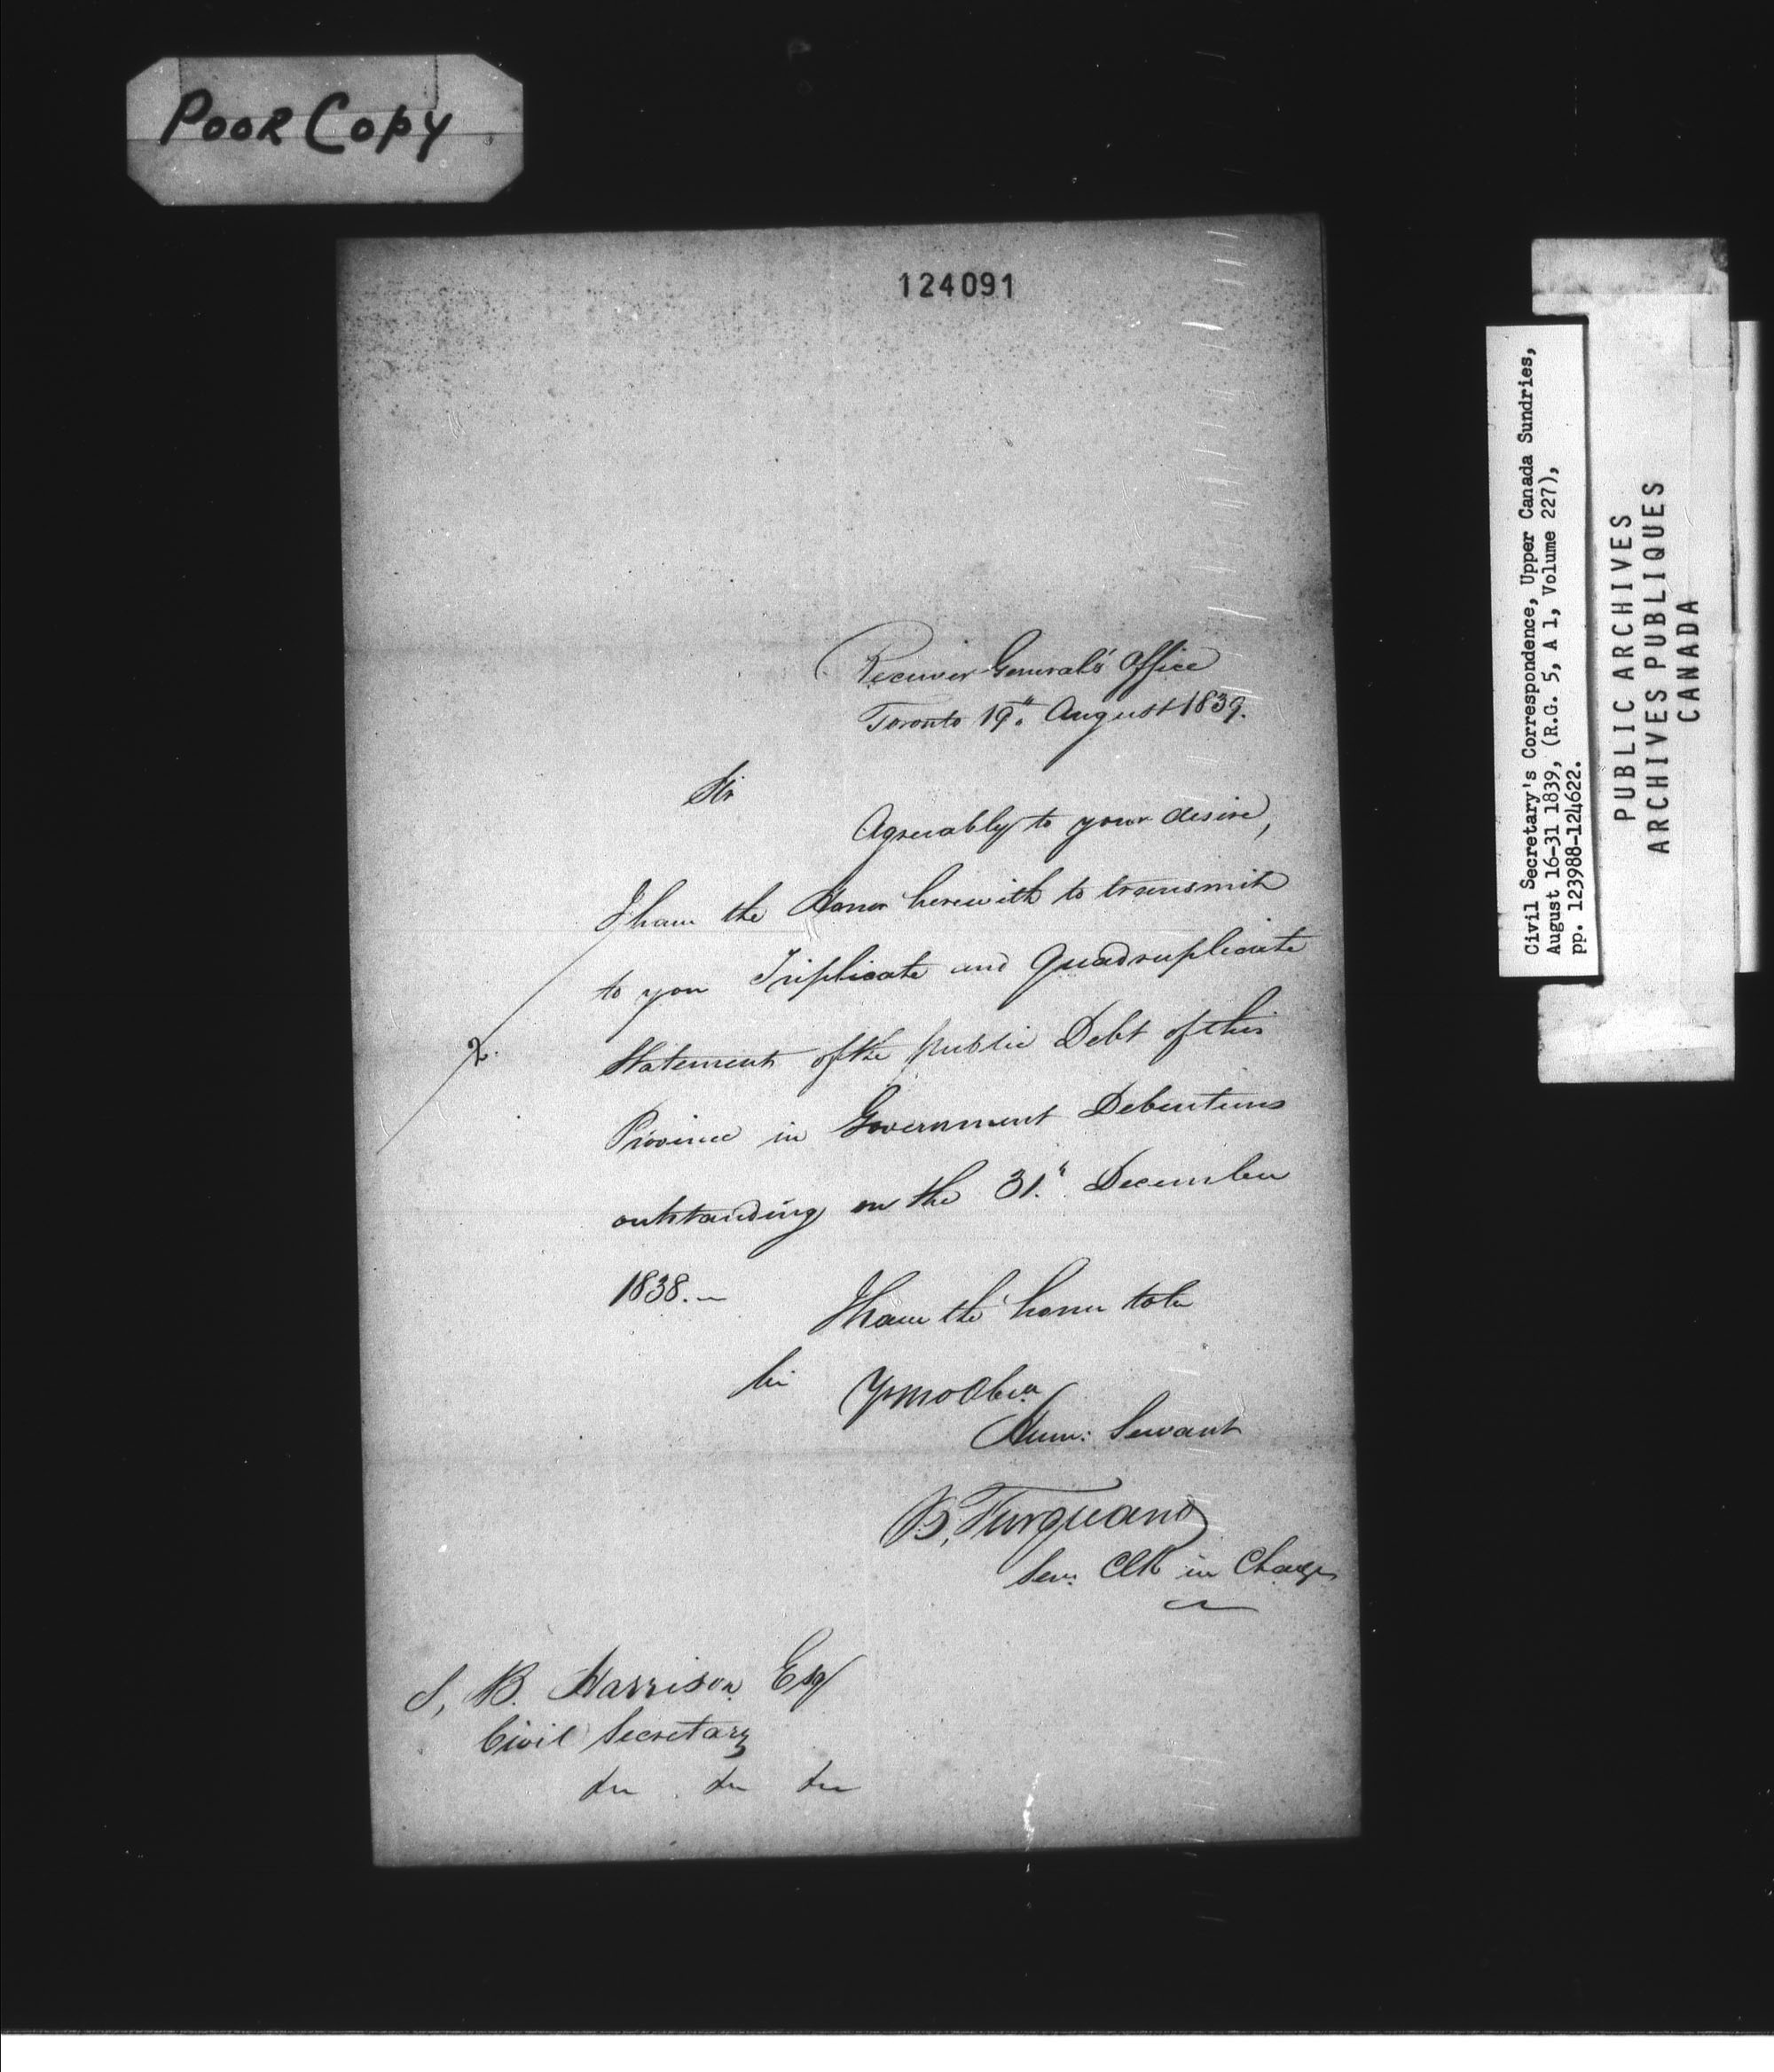 Poor Copy
124091
Receiver General's Office
Toronto 19" August 1839.
Sir
Agreeably to your desire,
I have the Honor herewith to transmit
to you Triplicate and Quadruplicate
2.
Statement of the public Debt of this
Province in Government Debentures
outstanding on the 31" December
1838.—
I have the honor to be
Sir
Yr mo Obed
Hum: Servant
B. Turquand
Sen: Clk in Charge
S, B. Harrison Esq
Civil Secretary
&c &c &c
Civil Secretary's Correspondence, Upper Canada Sundries,
August 16-31 1839, (R.G. 5, A 1, Volume 227),
pp. 123988-124622.
PUBLIC ARCHIVES
ARCHIVES PUBLIQUES
CANADA